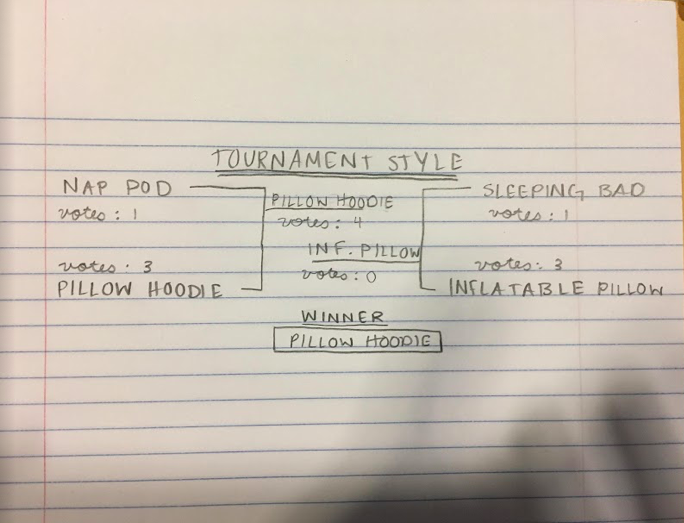 TOURNAMENT STYLE
NAP POD
votes: 1
votes: 3
PILLOW HOODIE
PILLOW HOODIE
votes: 4
INF. PILLOW
votes: 0
SLEEPING BAD
votes: 1
votes: 3
INFLATABLE PILLOW
WINNER
PILLOW HOODIE